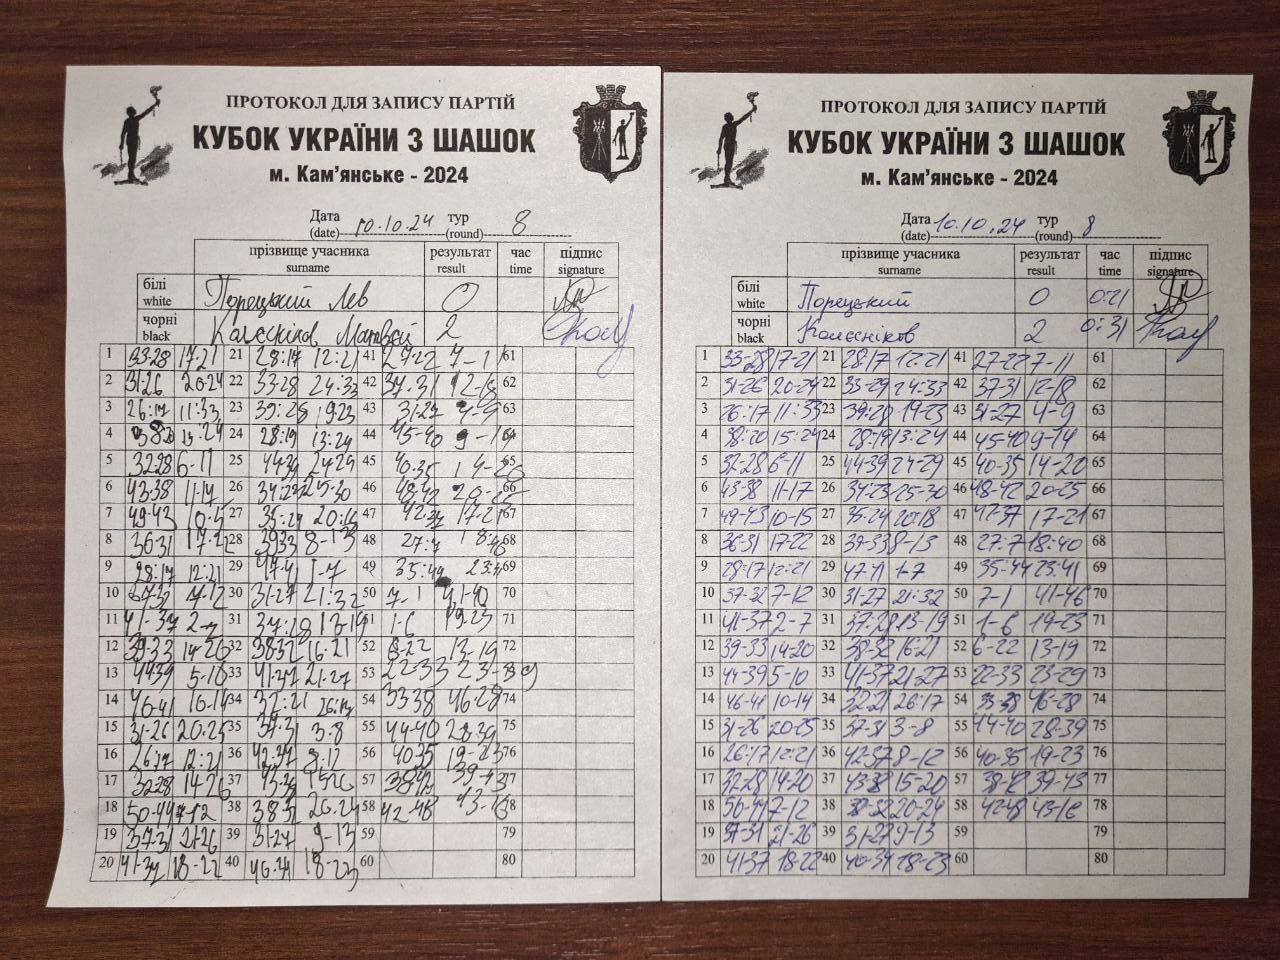 ПРОТОКОЛ ДЛЯ ЗАПИСУ ПАРТІЙ
КУБОК УКРАЇНИ З ШАШОК
м. Кам'янське - 2024
Дата 10.10.24 тур 8
(date) (round)
прізвище учасника результат час підпис
surname result time signature
білі Порецький Лев 0
white
чорні Колєсніков Матвєй 2
black
1 33-28 17-21 21 28:17 12:21 41 27-22 7-11 61
2 31-26 20-24 22 33-28 24:33 42 37-31 12-18 62
3 26:17 11:33 23 39:28 19-23 43 31-27 4-9 63
4 38:20 15:24 24 28:19 13:24 44 45-40 9-14 64
5 32-28 6-11 25 44-39 24-29 45 40-35 14-20 65
6 43-38 11-17 26 34:23 25-30 46 48-42 20-25 66
7 49-43 10-15 27 35:24 20:18 47 42-37 17-21 67
8 36-31 17-22 28 39-33 8-13 48 27:7 18:40 68
9 28:17 12:21 29 47-41 1-7 49 35:44 23:41 69
10 37-32 7-12 30 31-27 21:32 50 7-1 41-40 70
11 41-37 2-7 31 37:28 13-19 51 1-6 19-23 71
12 39-33 14-20 32 38-32 16-21 52 6-22 13-19 72
13 44-39 5-10 33 41-37 21-27 53 22-33 23-29 73
14 46-41 10-14 34 32:21 26:17 54 33-38 46-28 74
15 31-26 20-25 35 37-31 3-8 55 44-40 28-39 75
16 26:17 12:21 36 42-37 8-12 56 40-35 19-23 76
17 32-28 14-20 37 43-38 15-20 57 38-42 39-43 77
18 50-44 7-12 38 38-32 20-24 58 42-48 43-16 78
19 37-31 21-26 39 31-27 9-13 59 79
20 41-37 18-22 40 40-34 18-23 60 80
ПРОТОКОЛ ДЛЯ ЗАПИСУ ПАРТІЙ
КУБОК УКРАЇНИ З ШАШОК
м. Кам'янське - 2024
Дата 10.10.24 тур 8
(date) (round)
прізвище учасника результат час підпис
surname result time signature
білі Порецький 0 0:21
white
чорні Колєсніков 2 0:31
black
1 33-28 17-21 21 28:17 12:21 41 27-22 7-11 61
2 31-26 20-24 22 33-29 24:33 42 37-31 12-18 62
3 26:17 11:33 23 39:28 19-23 43 31-27 4-9 63
4 38:20 15:24 24 28:19 13:24 44 45-40 9-14 64
5 32-28 6-11 25 44-39 24-29 45 40-35 14-20 65
6 43-38 11-17 26 34:23 25-30 46 48-42 20-25 66
7 49-43 10-15 27 35:24 20:18 47 42-37 17-21 67
8 36-31 17-22 28 39-33 8-13 48 27:7 18:40 68
9 28:17 12:21 29 47-41 1-7 49 35:44 23:41 69
10 37-32 7-12 30 31-27 21:32 50 7-1 41-46 70
11 41-37 2-7 31 37:28 13-19 51 1-6 19-23 71
12 39-33 14-20 32 38-32 16-21 52 6-22 13-19 72
13 44-39 5-10 33 41-37 21-27 53 22-33 23-29 73
14 46-41 10-14 34 32:21 26:17 54 33-38 46-28 74
15 31-26 20-25 35 37-31 3-8 55 44-40 28-39 75
16 26:17 12:21 36 42-37 8-12 56 40-35 19-23 76
17 32-28 14-20 37 43-38 15-20 57 38-42 39-43 77
18 50-44 7-12 38 38-32 20-24 58 42-48 43-16 78
19 37-31 21-26 39 31-27 9-13 59 79
20 41-37 18-22 40 40-34 18-23 60 80